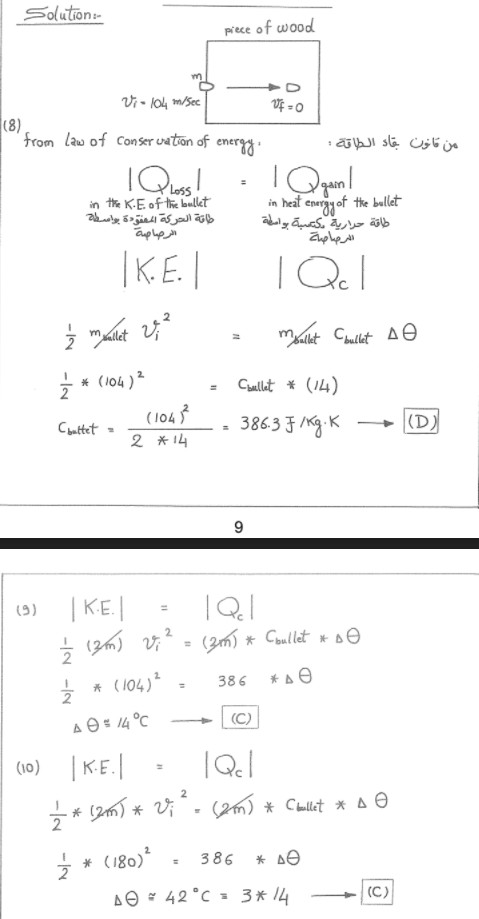 Solution:-
piece of wood
m
Vi = 104 m/sec
Vf = 0
(8)
from law of conservation of energy. من قانون بقاء الطاقة :
|Q Loss| = |Q gain|
in the K.E of the bullet in heat energy of the bullet
طاقة الحركة المفقودة بواسطة طاقة حرارية مكتسبة بواسطة
الرصاصة الرصاصة
|K.E.| |Qc|
1/2 m bullet Vi² = m bullet C bullet Δθ
1/2 * (104)² = C bullet * (14)
C bullet = (104)² / 2 * 14 = 386.3 J/Kg.K → (D)
9
(9) |K.E.| = |Qc|
1/2 (2m) Vi² = (2m) * C bullet * Δθ
1/2 * (104)² = 386 * Δθ
Δθ ≅ 14°C → (C)
(10) |K.E.| = |Qc|
1/2 * (2m) * Vi² = (2m) * C bullet * Δθ
1/2 * (180)² = 386 * Δθ
Δθ ≅ 42°C = 3*14 → (C)